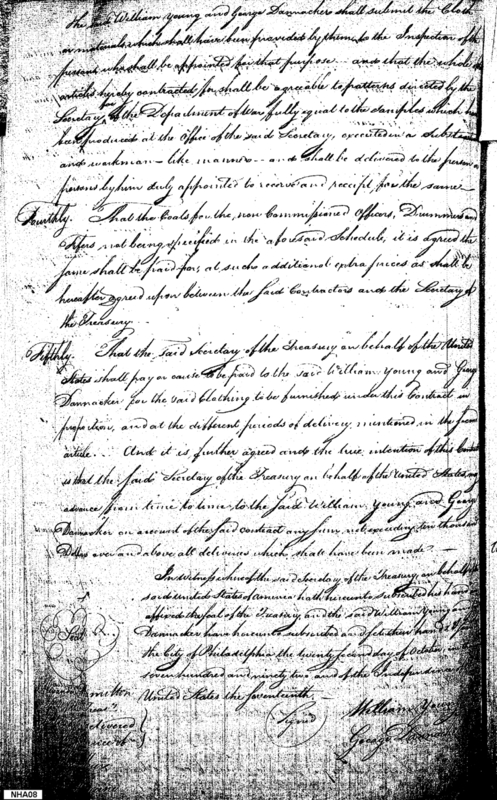 the said William Young and George Dannacker shall submit the Cloth
or materials which shall have been provided by them to the Inspection of the
person who shall be appointed for that purpose and that the whole
articles hereby contracted for shall be agreeable to patterns directed by the
Secretary of the Department of War fully equal to the samples which have
been produced at the Office of the said Secretary, executed in a substantial
and workman-like manner and shall be delivered to the person or
persons by him duly appointed to receive and receipt for the same
Fourthly. That the Coats for the non Commissioned Officers, Drummers and
Fifers not being specified in the aforesaid Schedule, it is agreed the
same shall be paid for, at such additional extra prices as shall be
hereafter agreed upon between the said Contractors and the Secretary of
the Treasury.
Fifthly. That the said Secretary of the Treasury on behalf of the United
States shall pay or cause to be paid to the said William Young and George
Dannacker for the said Clothing to be furnished under this Contract in
proportion, and at the different periods of delivery, mentioned in the
article. And it is further agreed and the true intention of this
is that the said Secretary of the Treasury on behalf of the United States, may
advance from time to time to the said William Young and George
Dannacker on account of the said contract any sum, not exceeding ten thousand
Dollars over and above all deliveries which shall have been made.
In Witness whereof the said Secretary of the Treasury, on behalf of the
said united States of America hath hereunto subscribed his hand
affixed the Seal of the Treasury, and the said William Young and
Dannacker have hereunto subscribed and set their hands
the City of Philadelphia the twenty second day of October
seven hundred and ninety two and of the Independence
United States the Seventeenth.
Seal
Signed
William Young
George
delivered
NHA08